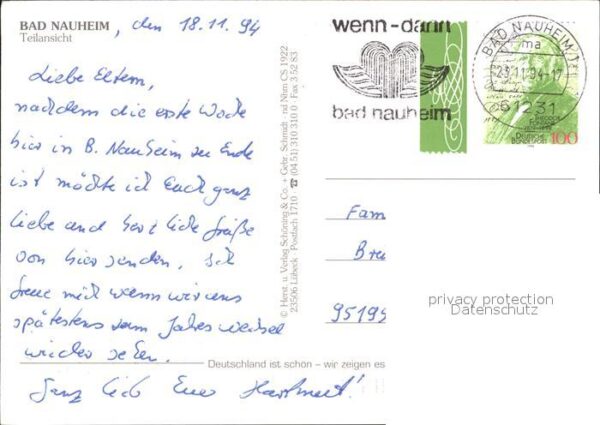 BAD NAUHEIM, den 18.11.94
Teilansicht
Liebe Eltern,
nachdem die erste Woche
hier in B. Nauheim zu Ende
ist möchte ich Euch ganz
liebe und herzliche Grüße
von hier senden, ich
freue mich wenn wir uns
spätestens zum Jahreswechsel
wieder sehen.
Ganz lieb Euer Hartmut!
© Herst. u. Verlag Schöning & Co. + Gebr. Schmidt - nd Nhm CS 1922
23506 Lübeck · Postfach 1710 ☎ (04 51) 310 310 0 · Fax 3 52 83
Deutschland ist schön – wir zeigen es
wenn-dann
bad nauheim
BAD NAUHEIM 1
ma
23.11.94-17
61231
Deutsche
Bundespost
100
Fam
Bre
95195
privacy protection
Datenschutz